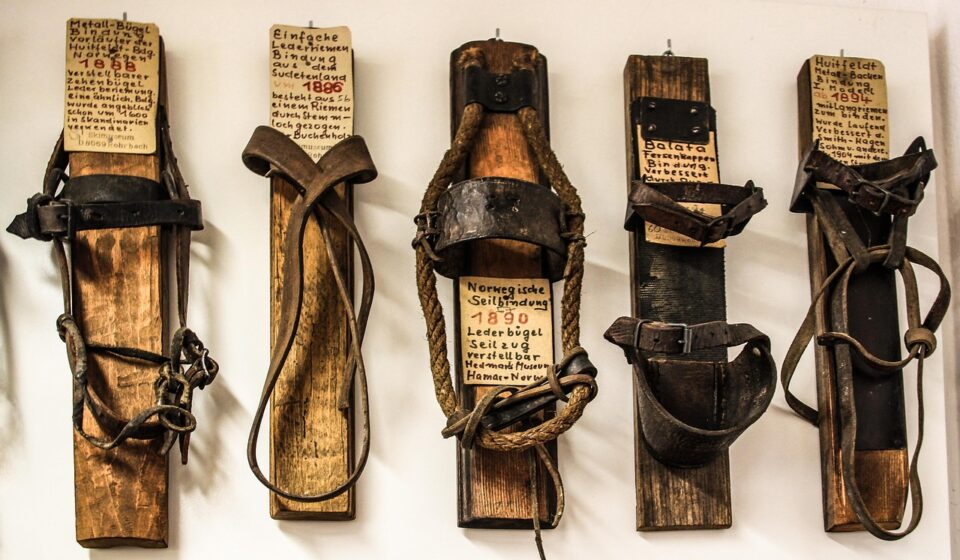 Metall-Bügel
Bindung
Vorläufer der
Huitfeldt-Bdg.
Norwegen
1888
verstellbarer
Zehenbügel
Lederberiemung,
eine ähnlich. Bdg.
wurde angeblich
schon um 1600
in Skandinavien
verwendet.
Skimuseum
D8069 Rohrbach
Einfache
Lederriemen
Bindung
aus dem
Sudetenland
um 1886
besteht aus
einem Riemen
durch Stemm-
loch gezogen.
Buchenholz
Norwegische
Seilbindung
1890
Lederbügel
Seilzug
verstellbar
Hedmark Museum
Hamar-Norw.
Balata
Fersenkappen
Bindung.
Verbessert
Huitfeldt
Metall-Backen
Bindung
I. Modell
1894
mit Langriemen
zum binden.
wurde laufend
Verbessert d.
Smith-Hagen
Sohm u. andere.
1904 mit